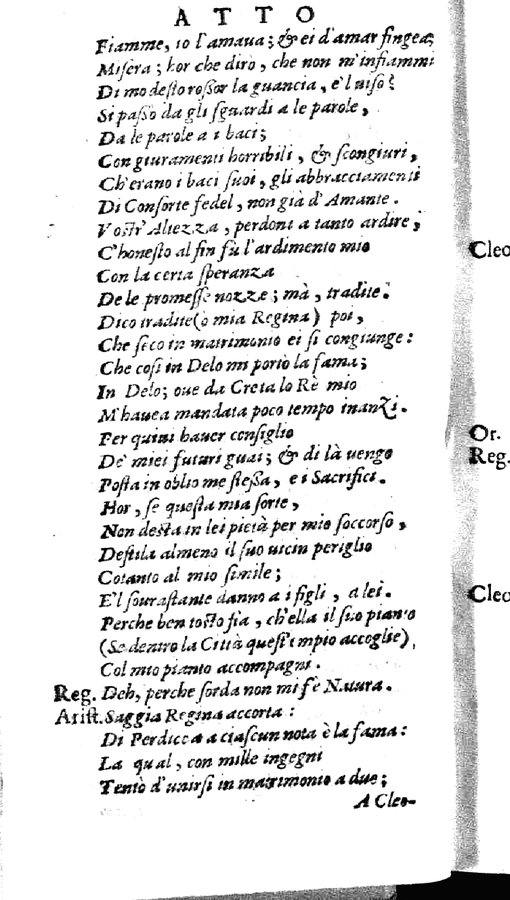 ATTO
Fiamme, io l'amaua; & ei d'amar fingea;
Misera; hor che dirò, che non m'infiammi
Di modesto rossor la guancia, e'l uiso?
Si passò da gli sguardi a le parole,
Da le parole a i baci;
Con giuramenti horribili, & scongiuri,
Ch'erano i baci suoi, gli abbracciamenti
Di Consorte fedel, non già d'Amante.
Vostr'Altezza, perdoni a tanto ardire,
C'honesto al fin fù l'ardimento mio
Con la certa speranza
De le promesse nozze; mà, tradite.
Dico tradite (ò mia Regina) poi,
Che seco in matrimonio ei si congiunge:
Che così in Delo mi portò la fama;
In Delo; oue da Creta lo Rè mio
M'hauea mandata poco tempo inanzi.
Per quiui hauer consiglio
De' miei futuri guai; & di là uengo
Posta in oblio me stessa, e i Sacrifici.
Hor, se questa mia sorte,
Non desta in lei pietà per mio soccorso,
Destila almeno il suo uicin periglio
Cotanto al mio simile;
E'l sourastante danno a i figli, a lei.
Perche ben tosto fia, ch'ella il suo pianto
(Se dentro la Città quest'empio accoglie),
Col mio pianto accompagni.
Reg. Deh, perche sorda non mi fè Natura.
Arist. Saggia Regina accorta:
Di Perdicca a ciascun nota è la fama:
La qual, con mille ingegni
Tentò d'unirsi in matrimonio a due;
A Cleo-
Cleo
Or.
Reg.
Cleo